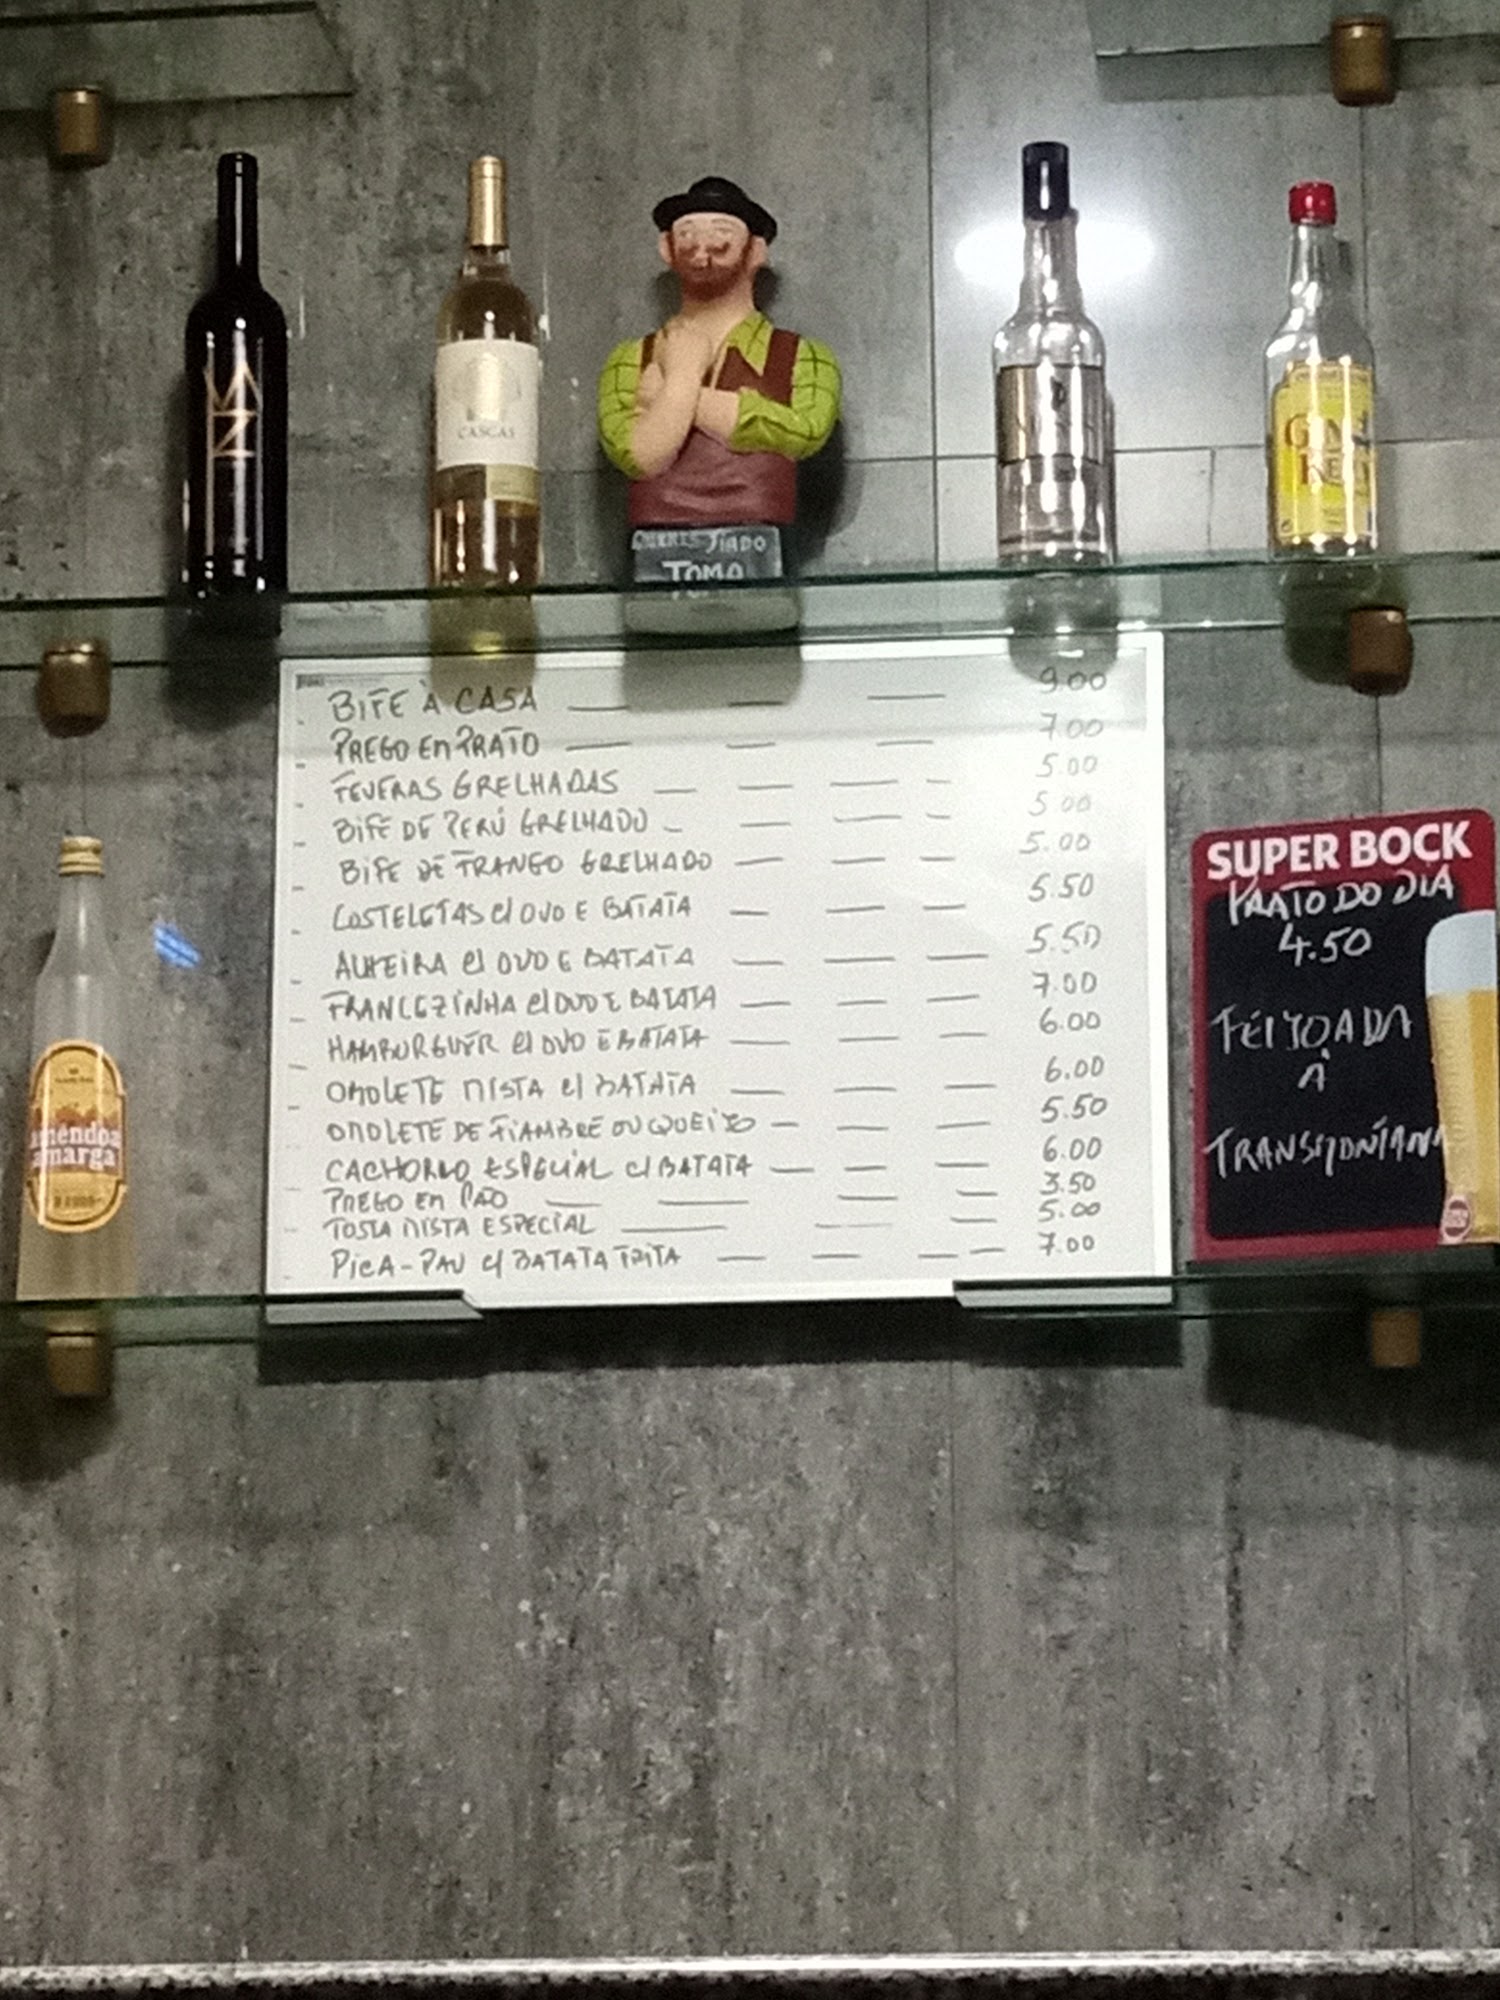 CASCAS
QUERES FIADO
TOMA
BIFE À CASA — — — 9.00
PREGO EM PRATO — — — 7.00
FEVERAS GRELHADAS — — — — 5.00
BIFE DE PERÚ GRELHADO — — — — 5.00
BIFE DE FRANGO GRELHADO — — — 5.00
COSTELETAS C/ OVO E BATATA — — — 5.50
ALHEIRA C/ OVO E BATATA — — — 5.50
FRANCEZINHA C/ OVO E BATATA — — — 7.00
HAMBURGUER C/ OVO E BATATA — — — 6.00
OMOLETE MISTA C/ BATATA — — — 6.00
OMOLETE DE FIAMBRE OU QUEIJO — — — 5.50
CACHORRO ESPECIAL C/ BATATA — — — 6.00
PREGO EM PÃO — — — — 3.50
TOSTA MISTA ESPECIAL — — — 5.00
PICA-PAU C/ BATATA FRITA — — — — 7.00
SUPER BOCK
PRATO DO DIA
4.50
FEIJOADA
À
TRANSMONTANA
amêndoa
amarga